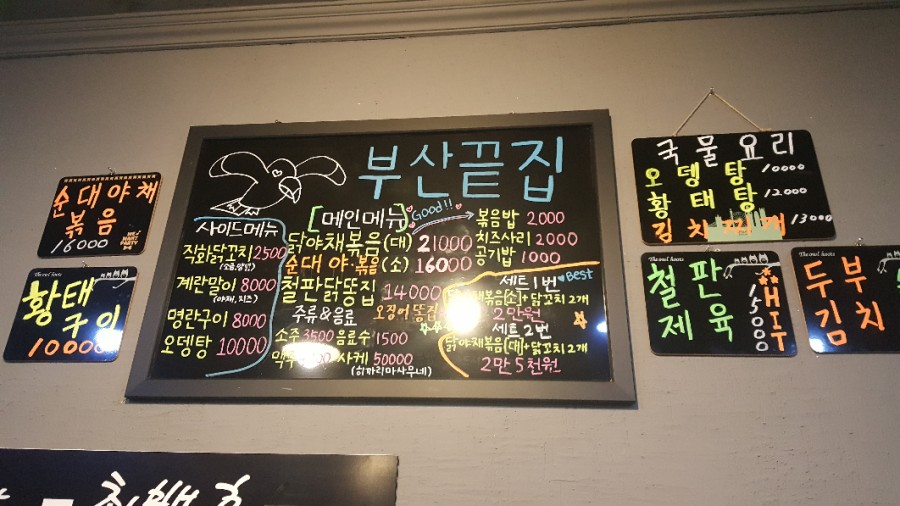 순대야채
볶음
16000
WE WANT PARTY
The owl hoots
황태
구이
10000
부산끝집
사이드메뉴
직화닭꼬치 2500
계란말이 8000
(야채, 치즈)
명란구이 8000
오뎅탕 10000
[메인메뉴]
Good!!
닭야채볶음(대) 21000
순대야·볶음(소) 16000
철판닭똥집 14000
주류&음료
소주 3500 음료수 1500
사케 50000
(히까리마사무네)
볶음밥 2000
치즈사리 2000
공기밥 1000
세트1번 Best
볶음[소]+닭꼬치 2개
2만원
세트 2번
닭야채볶음[대]+닭꼬치 2개
2만 5천원
국물요리
오뎅탕 10000
황태탕 12000
김치찌개 13000
The owl hoots
철판
제육
15000
HIT
The owl hoots
두부
김치